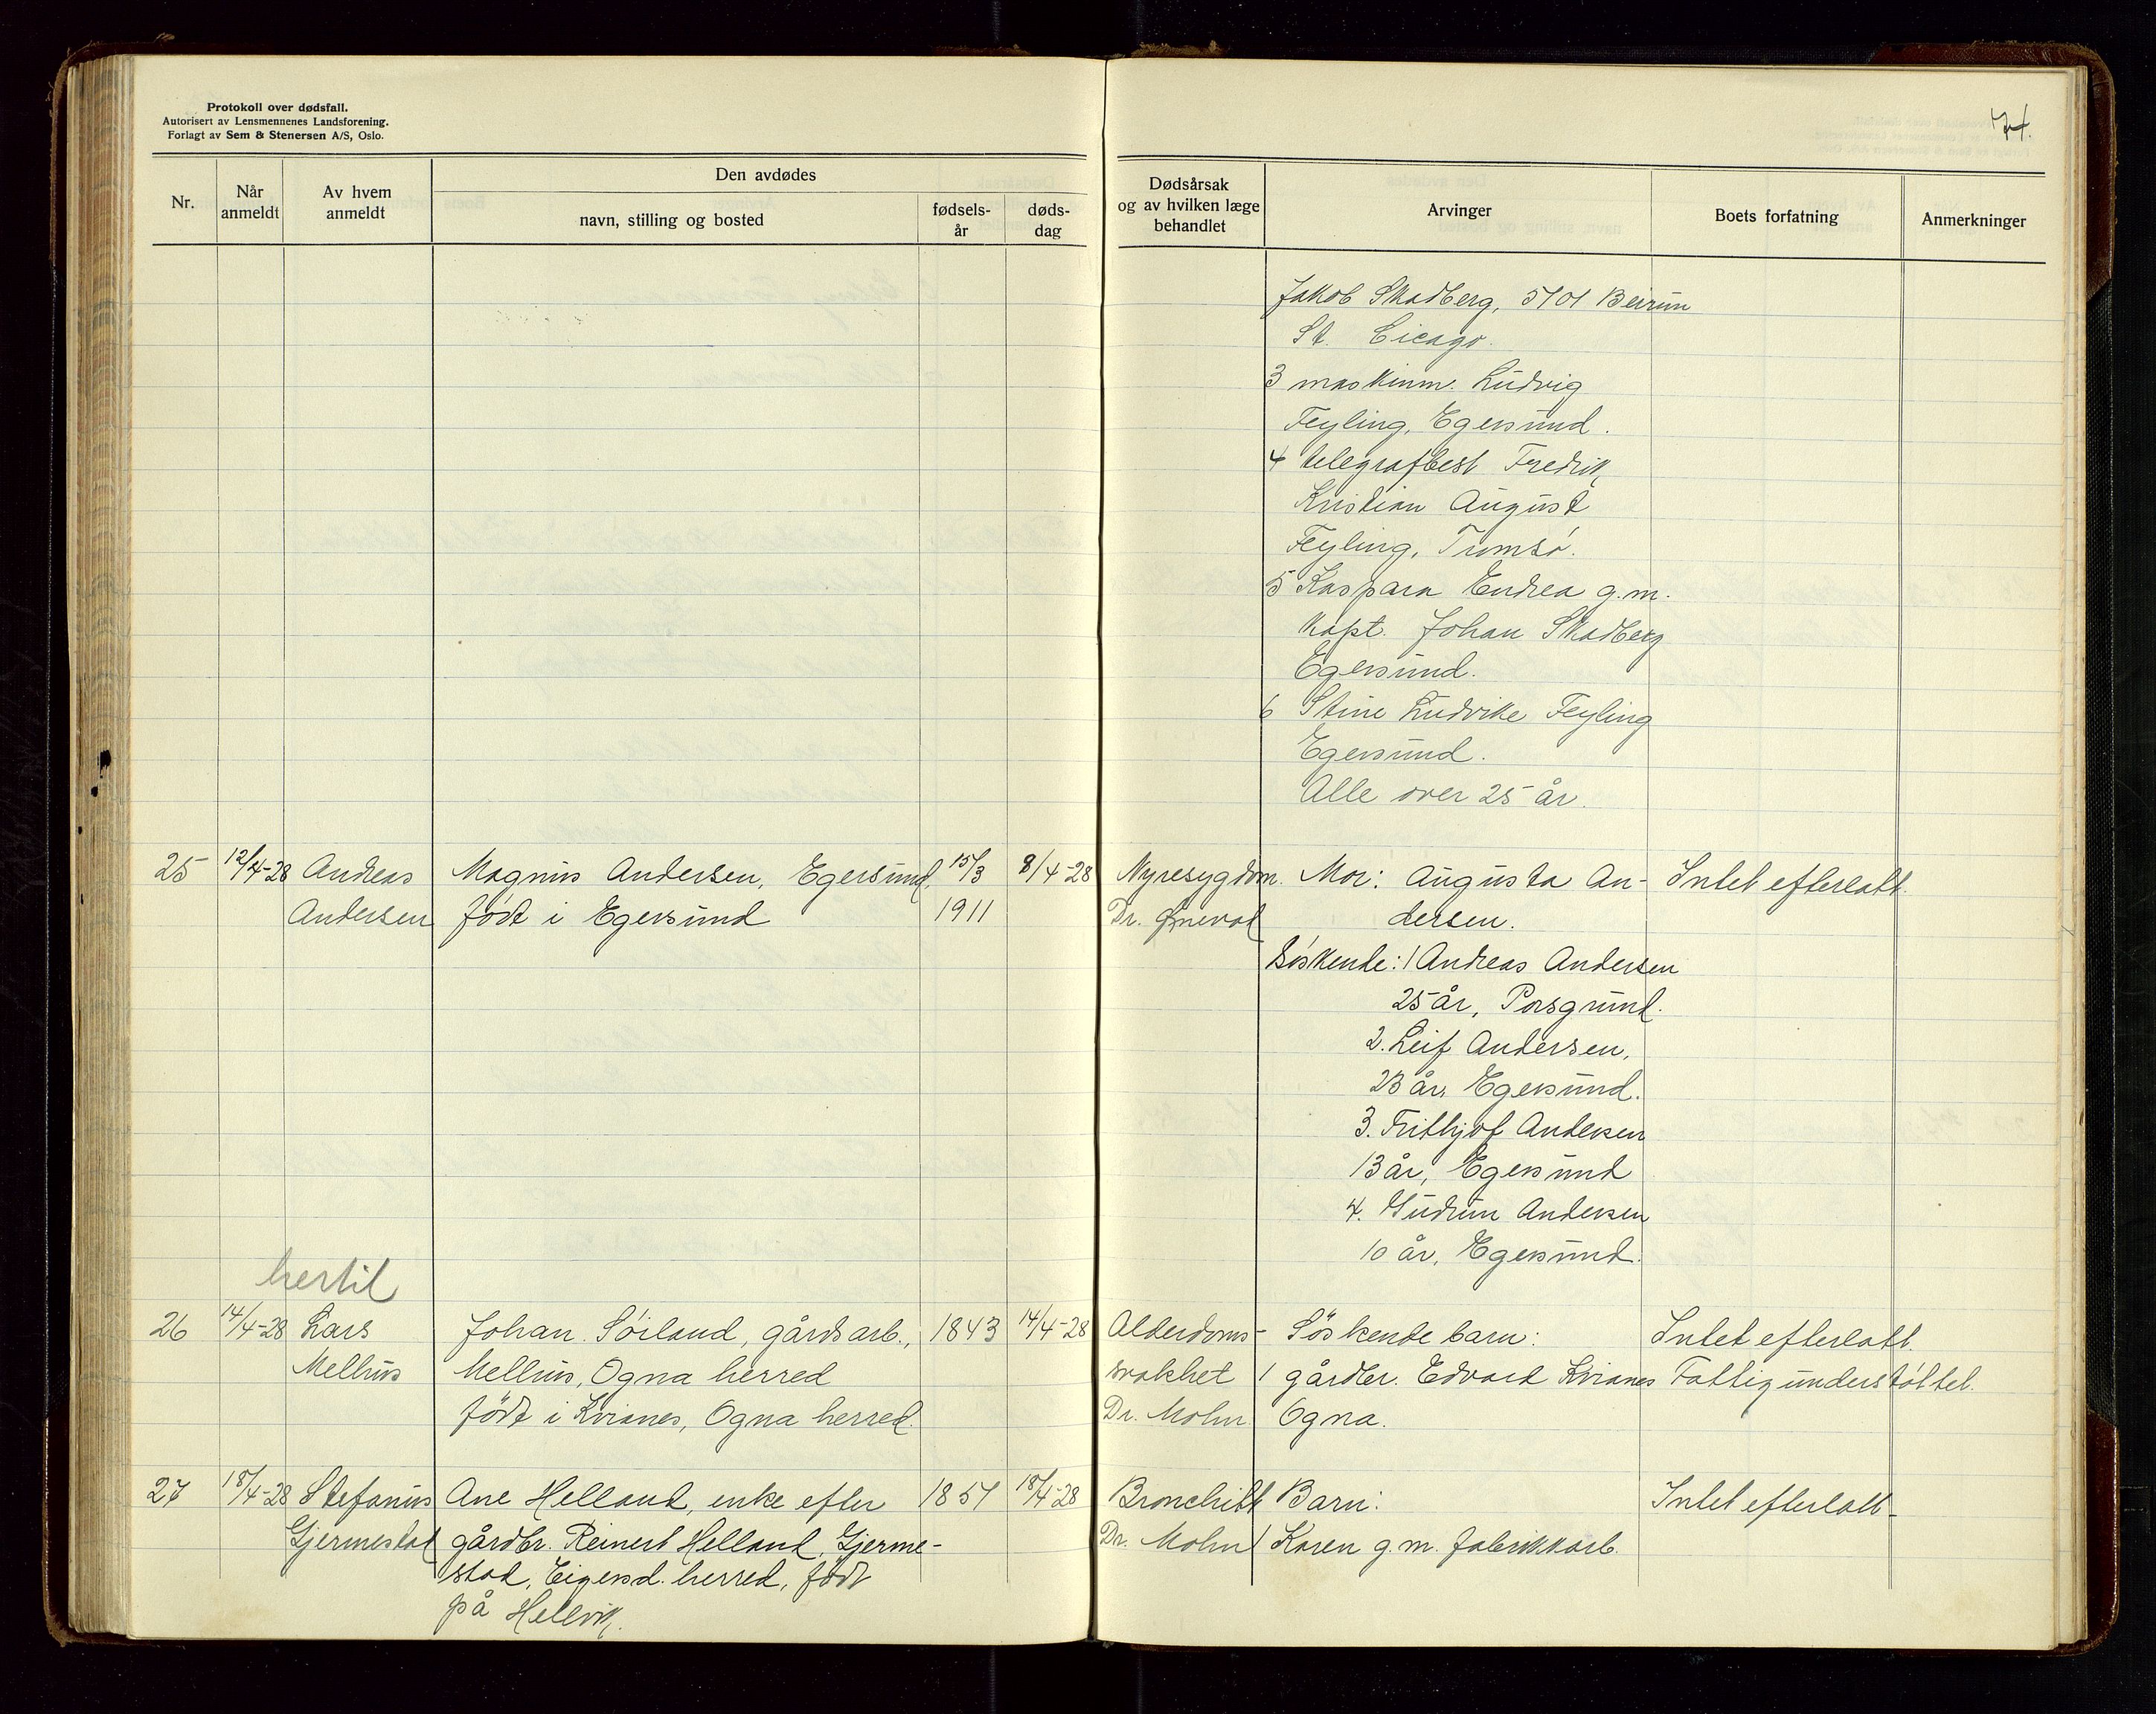 Protokoll over dødsfall.
Autorisert av Lensmennenes Landsforening.
Forlagt av Sem & Stenersen A/S, Oslo.
74.
Nr.
Når
anmeldt
Av hvem
anmeldt
Den avdødes
navn, stilling og bosted
fødsels-
år
døds-
dag
Dødsårsak
og av hvilken læge
behandlet
Arvinger
Boets forfatning
Anmerkninger
Jakob Skadberg, 5701
St. Cicago.
3 maskinm. Ludvig
Feyling, Egersund.
4 telegrafbest Fredrik
Kristian August
Feyling, Tromsø.
5 Kaspara Endrea g.m.
kapt. Johan Skadberg
Egersund.
6 Stine Ludvike Feyling
Egersund.
Alle over 25 år.
25 12/4-28 Andreas Magnus Andersen, Egersund, 15/3 8/4-28 Nyresygdom. Mor: Augusta An- Intet efterlatt.
Andersen født i Egersund 1911 Dr. dersen.
Søskende: 1 Andreas Andersen
25 år, Porsgrund.
2. Leif Andersen,
23 år, Egersund.
3. Frithjof Andersen
13 år, Egersund
4. Gudrun Andersen
10 år, Egersund.
hertil
26 14/4-28 Lars Johan Sørland, gårdsarb., 1843 14/4-28 Alderdoms- Søskendebarn: Intet efterlatt.
Melhus Melhus, Ogna herred svakhet 1 gårdbr. Edvard Kvianes Fattigunderstøttet.
født i Kvianes, Ogna herred. Dr. Mohn Ogna.
27 18/4-28 Stefanus Ane Helland, enke efter 1857 18/4-28 Bronchitt Barn: Intet efterlatt-
Gjermestad gårdbr. Reinert Helland, Gjerme- Dr. Mohn 1 Karen g.m. fabrikkarb.
stad, Eigersd. herred, født
på Hellvik.